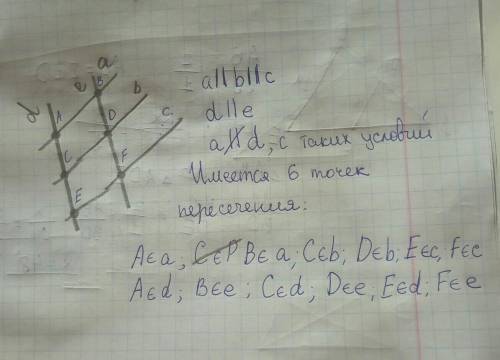 a
e B b
d A D c
C F
E
a||b||c
d||e
a∦d, с таких условий
Имеется 6 точек
пересечения:
A∈a; C∈P B∈a; C∈b; D∈b; E∈c, F∈c
A∈d; B∈e; C∈d; D∈e; E∈d; F∈e